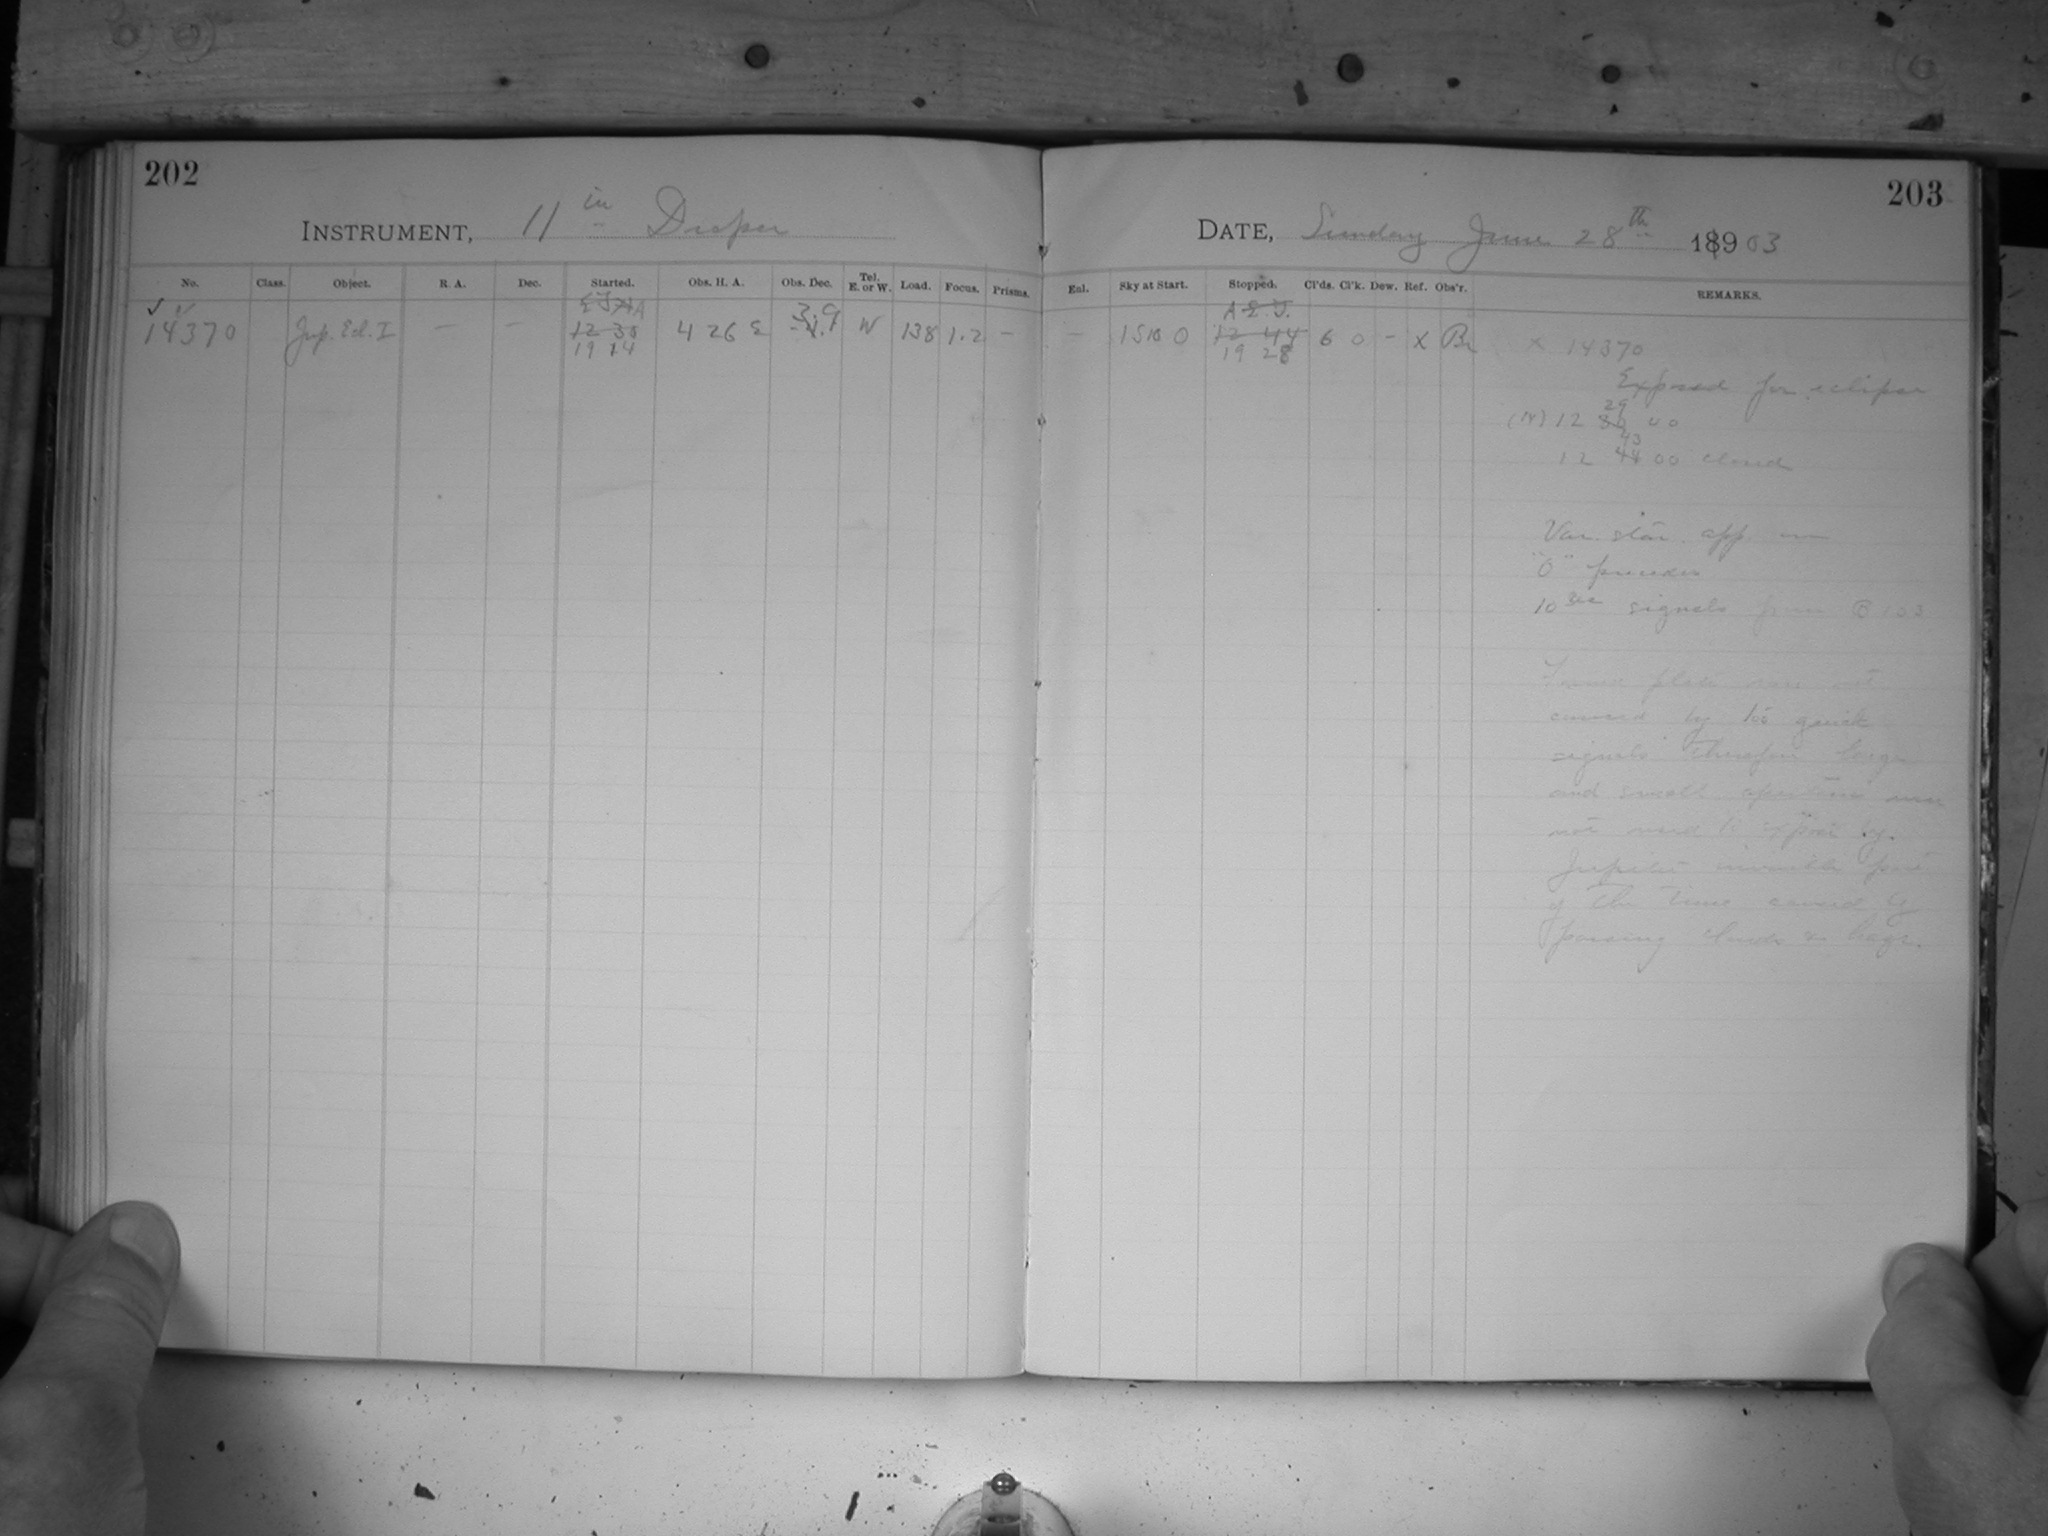 202
203
INSTRUMENT, 11 in Draper
DATE, Sunday June 28th 1903
No. Class. Object. R. A. Dec. Started. Obs. H. A. Obs. Dec. Tel. E. or W. Load. Focus. Prisms. Enl. Sky at Start. Stopped. Cl'ds. Cl'k. Dew. Ref. Obs'r. REMARKS.
14370 Jup. Ecl. I — — 12 30 4 26 E W 138 1.2 — — 12 44 6 0 – x Br
19 14 19 28
x 14370
Exposed for eclipse
29
12 30 40
43
12 44 00 closed
Var. star. app. on
"0" process
10 sec signals from B 103
Found plate was not
caused by too quick
signals Therefore large
and small aperture were
not used to expose by.
Jupiter invisible part
of the time caused by
passing clouds & haze.